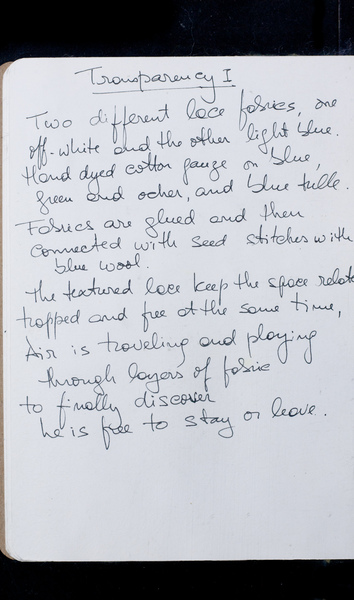 Transparency I
Two different lace fabrics, one
off-white and the other light blue.
Hand dyed cotton gauze on blue,
green and ocher, and blue tulle.
Fabrics are glued and then
connected with seed stitches with
blue wool.
The textured lace keep the space relate
trapped and free at the same time,
Air is traveling and playing
through layers of fabric
to finally discover
he is free to stay or leave.